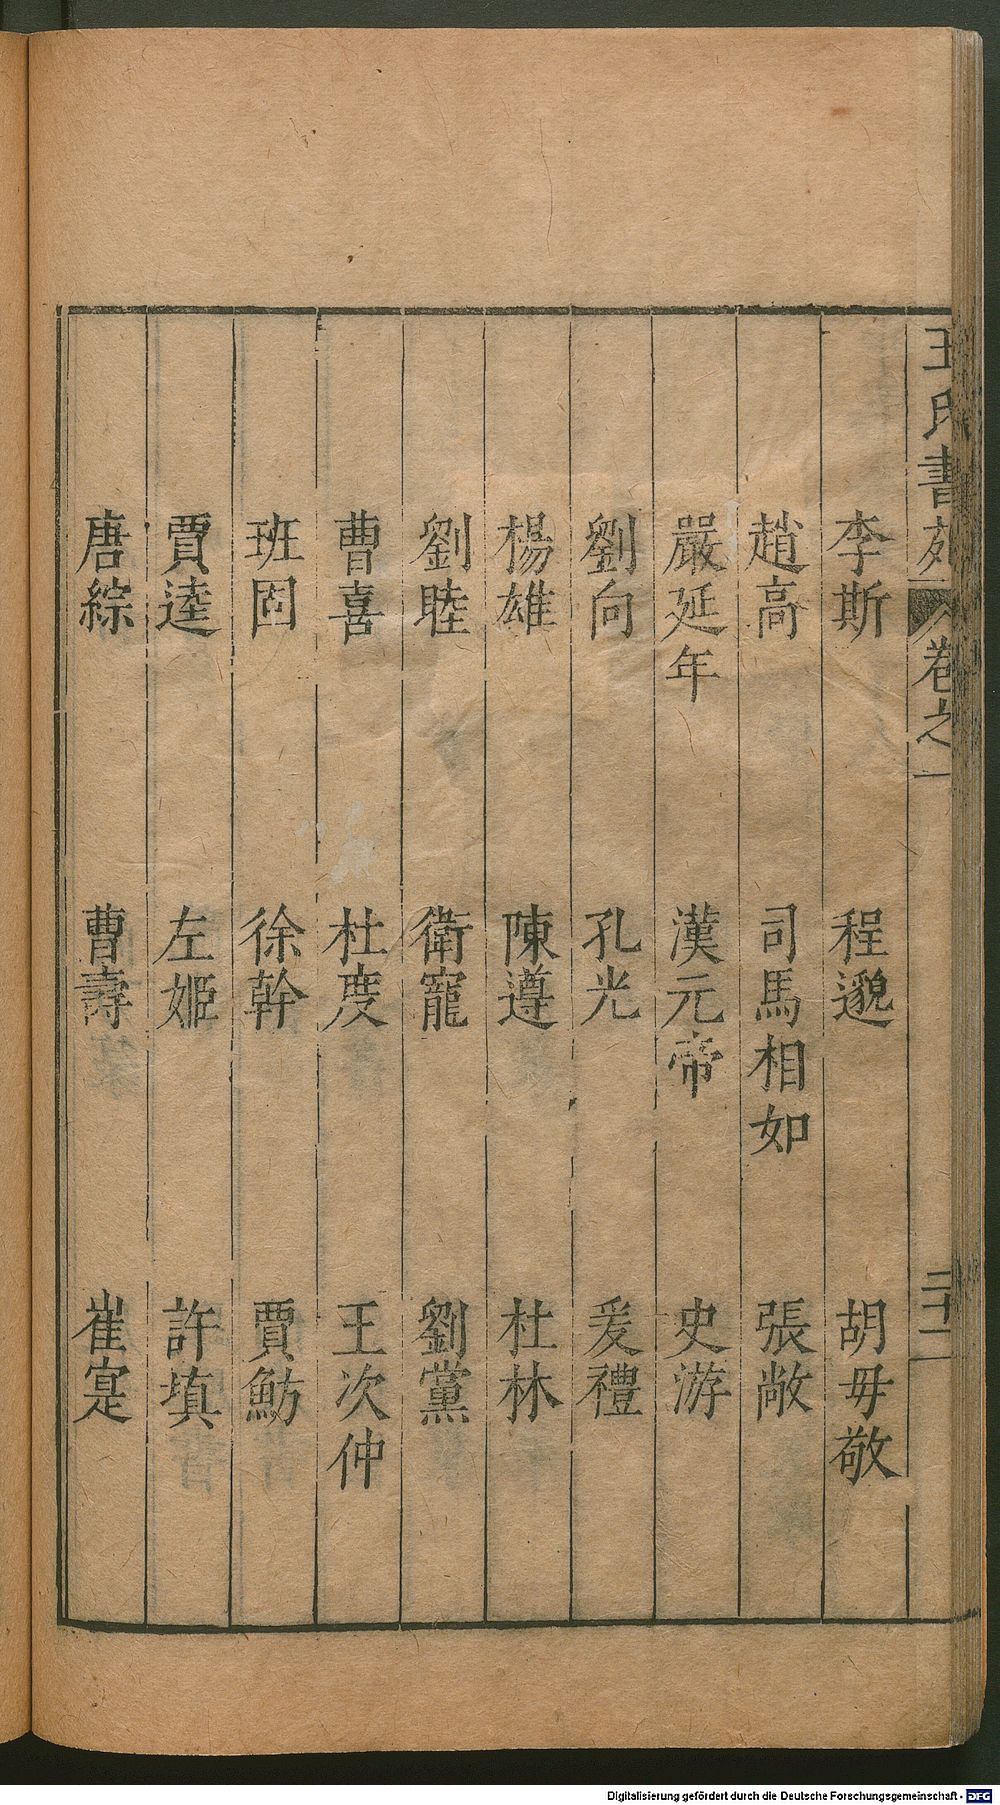 王氏書苑 卷之一 二十二
李斯 程邈 胡毋敬
趙高 司馬相如 張敞
嚴延年 漢元帝 史游
劉向 孔光 爰禮
楊雄 陳遵 杜林
劉睦 衛寵 劉黨
曹喜 杜度 王次仲
班固 徐幹 賈魴
賈逵 左姬 許塡
唐綜 曹壽 崔寔
Digitalisierung gefördert durch die Deutsche Forschungsgemeinschaft - DFG